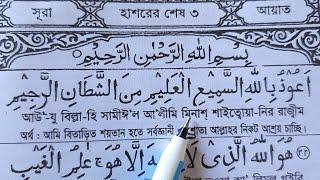 সূরা হাশরের শেষ ৩ আয়াত
بِسْمِ اللهِ الرَّحْمٰنِ الرَّحِيْمِ
اَعُوْذُ بِاللهِ السَّمِيْعِ الْعَلِيْمِ مِنَ الشَّيْطَانِ الرَّجِيْمِ
আউ'-যু বিল্লা-হি সামীঈ'ল আ'লীমি মিনাশ্ শাইত্বোয়া-নির রাজ্বীম
অর্থ : আমি বিতাড়িত শয়তান হতে সর্বজ্ঞানী আল্লাহর নিকট আশ্রয় চাচ্ছি।
هُوَ اللهُ الَّذِىْ لَا اِلٰهَ اِلَّا هُوَ عٰلِمُ الْغَيْبِ